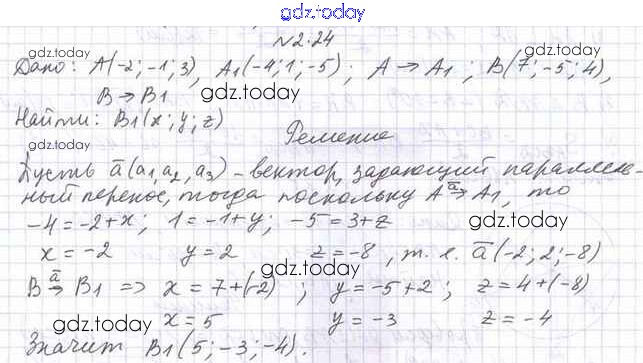 gdz.today
№2.24
gdz.today gdz.today
Дано: A(-2; -1; 3), A₁(-4; 1; -5); A → A₁; B(7; -5; 4),
B → B₁ gdz.today
Найти: B₁(x; y; z)
gdz.today Решение
Пусть a̅(a₁, a₂, a₃) - вектор, задающий параллель-
ный перенос, тогда поскольку A →a̅ A₁, то
-4 = -2+x; 1 = -1+y; -5 = 3+z gdz.today
x = -2 y = 2 z = -8, т. е. a̅(-2; 2; -8)
gdz.today
B →a̅ B₁ => x = 7+(-2); y = -5+2; z = 4+(-8)
gdz.today x = 5 y = -3 z = -4
Значит B₁(5; -3; -4). gdz.today